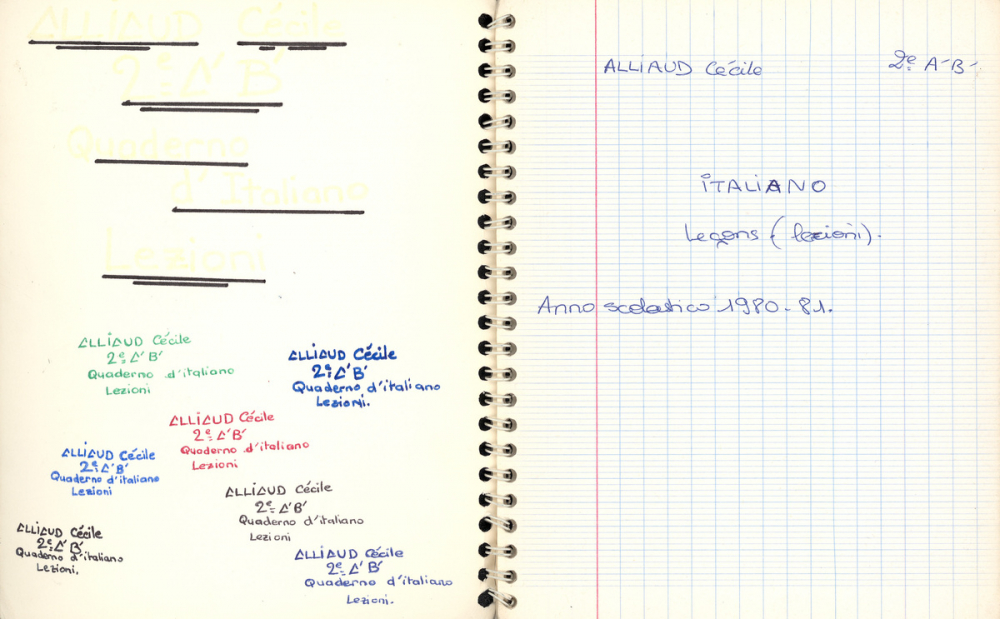 ALLIAUD Cécile
2e A'B'
Quaderno
d'Italiano
Lezioni
ALLIAUD Cécile
2e A'B'
Quaderno d'italiano
Lezioni
ALLIAUD Cécile
2e A'B'
Quaderno d'italiano
Lezioni.
ALLIAUD Cécile
2e A'B'
Quaderno d'italiano
Lezioni
ALLIAUD Cécile
2e A'B'
Quaderno d'italiano
Lezioni
ALLIAUD Cécile
2e A'B'
Quaderno d'italiano
Lezioni
ALLIAUD Cécile
2e A'B'
Quaderno d'italiano
Lezioni.
ALLIAUD Cécile
2e A'B'
Quaderno d'italiano
Lezioni.
ALLIAUD Cécile 2e A'B'
ITALIANO
Leçons (lezioni).
Anno scolastico 1980-81.